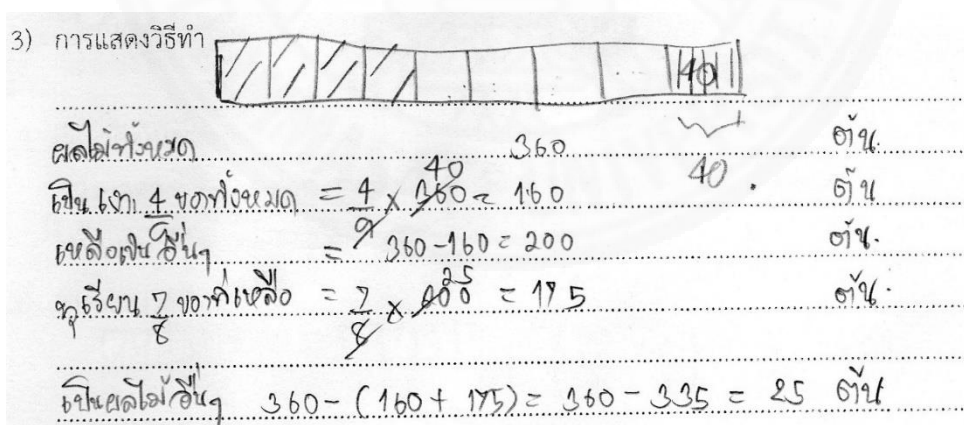 3) การแสดงวิธีทำ
40
ผลไม้ทั้งหมด 360 ต้น
40
เป็น เงาะ 4/9 ของทั้งหมด = 4/9 × 360 = 160 ต้น
40
เหลือเป็น อื่นๆ = 360-160 = 200 ต้น.
ทุเรียน 7/8 ของที่เหลือ = 7/8 × 200 = 175 ต้น.
25
เป็นผลไม้อื่นๆ 360 - (160 + 175) = 360 - 335 = 25 ต้น